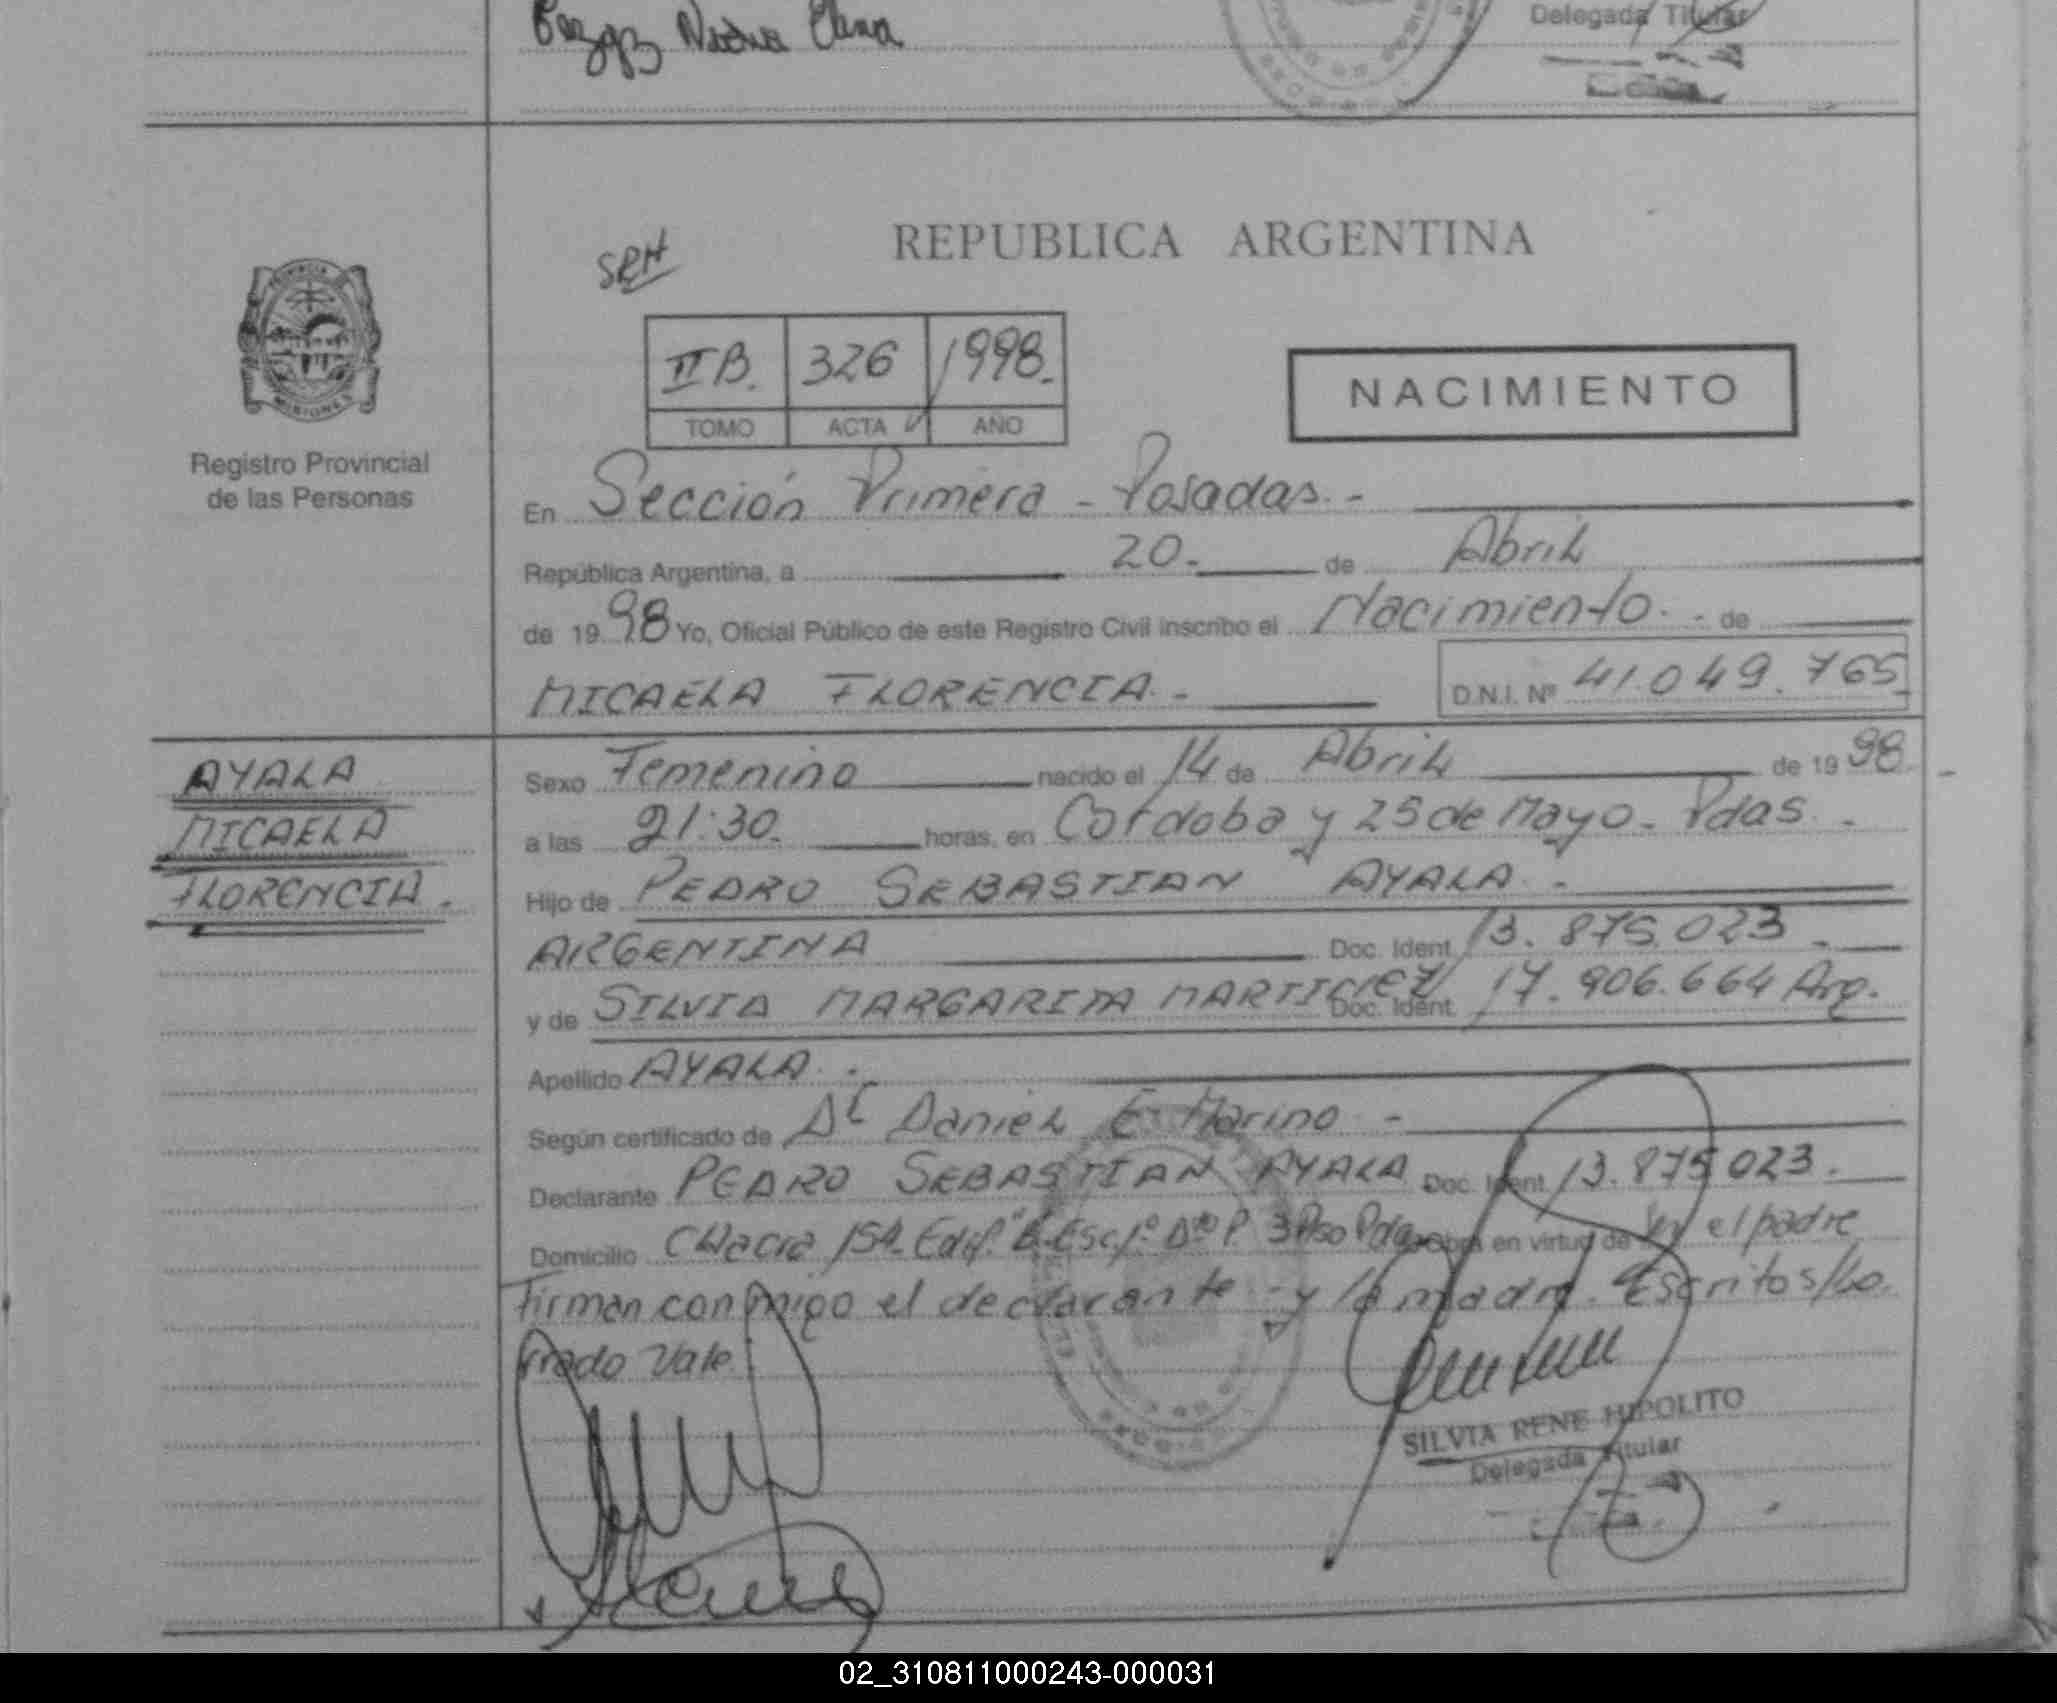 Elena
Delegada Titular
SRH
REPUBLICA ARGENTINA
PROVINCIA DE
MISIONES
Registro Provincial
de las Personas
II B. 326 1998.
TOMO ACTA AÑO
NACIMIENTO
En Sección Primera - Posadas. -
República Argentina, a 20. de Abril
de 1998 Yo, Oficial Público de este Registro Civil inscribo el Nacimiento. - de
MICAELA FLORENCIA. - D.N.I. Nº 41.049.765
AYALA
MICAELA
FLORENCIA.
Sexo Femenino nacido el 14 de Abril de 1998
a las 21:30. horas, en Cordoba y 25 de Mayo - Pdas. -
Hijo de PEDRO SEBASTIAN AYALA. -
ARGENTINA Doc. Ident. 13.875.023 -
y de SILVIA MARGARITA MARTINEZ Doc. Ident. 17.906.664 Arg.
Apellido AYALA. -
Según certificado de Dr Daniel E. Marino -
Declarante PEDRO SEBASTIAN AYALA Doc. Ident. 13.875.023.
Domicilio Chacra 154 Edif. Esc. 1º Dto P. 3 Piso Pdas. Obra en virtud de ser el padre
Firman conmigo el declarante - y la madre. Escrito s/bo.
rrado Vale.
SILVIA RENE HIPOLITO
Delegada Titular
02_310811000243-000031